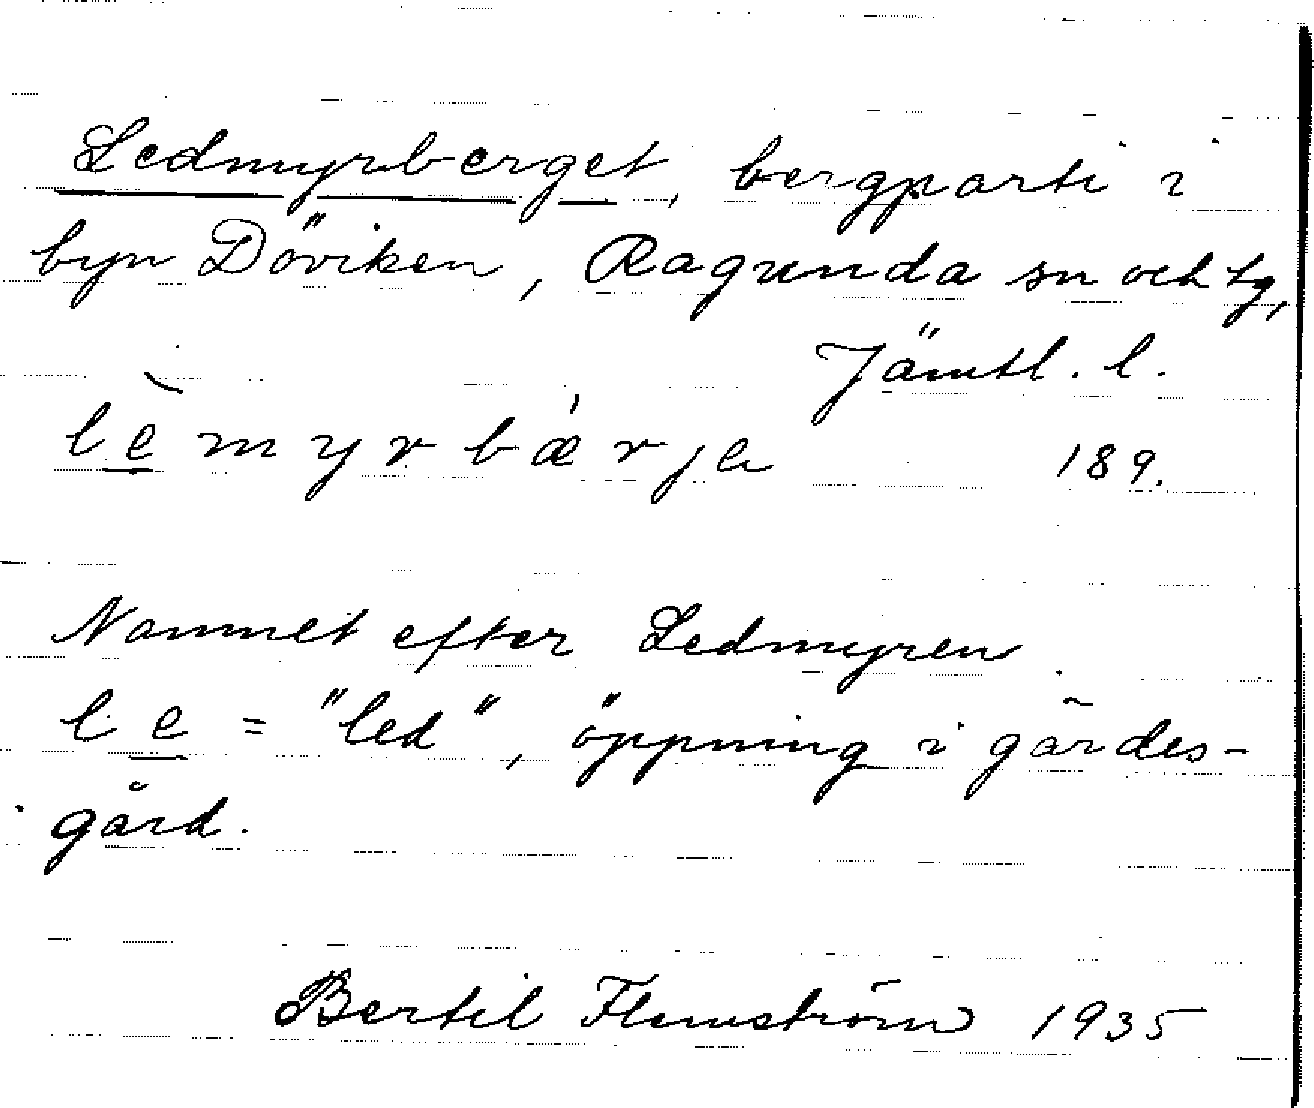 Ledmyrberget, bergparti i
byn Döviken, Ragunda sn och tg,
Jämtl. l.
lèmyrbǽrje 189.
Namnet efter Ledmyren.
le = "led", öppning i gärdes-
gård.
Bertil Flemström 1935